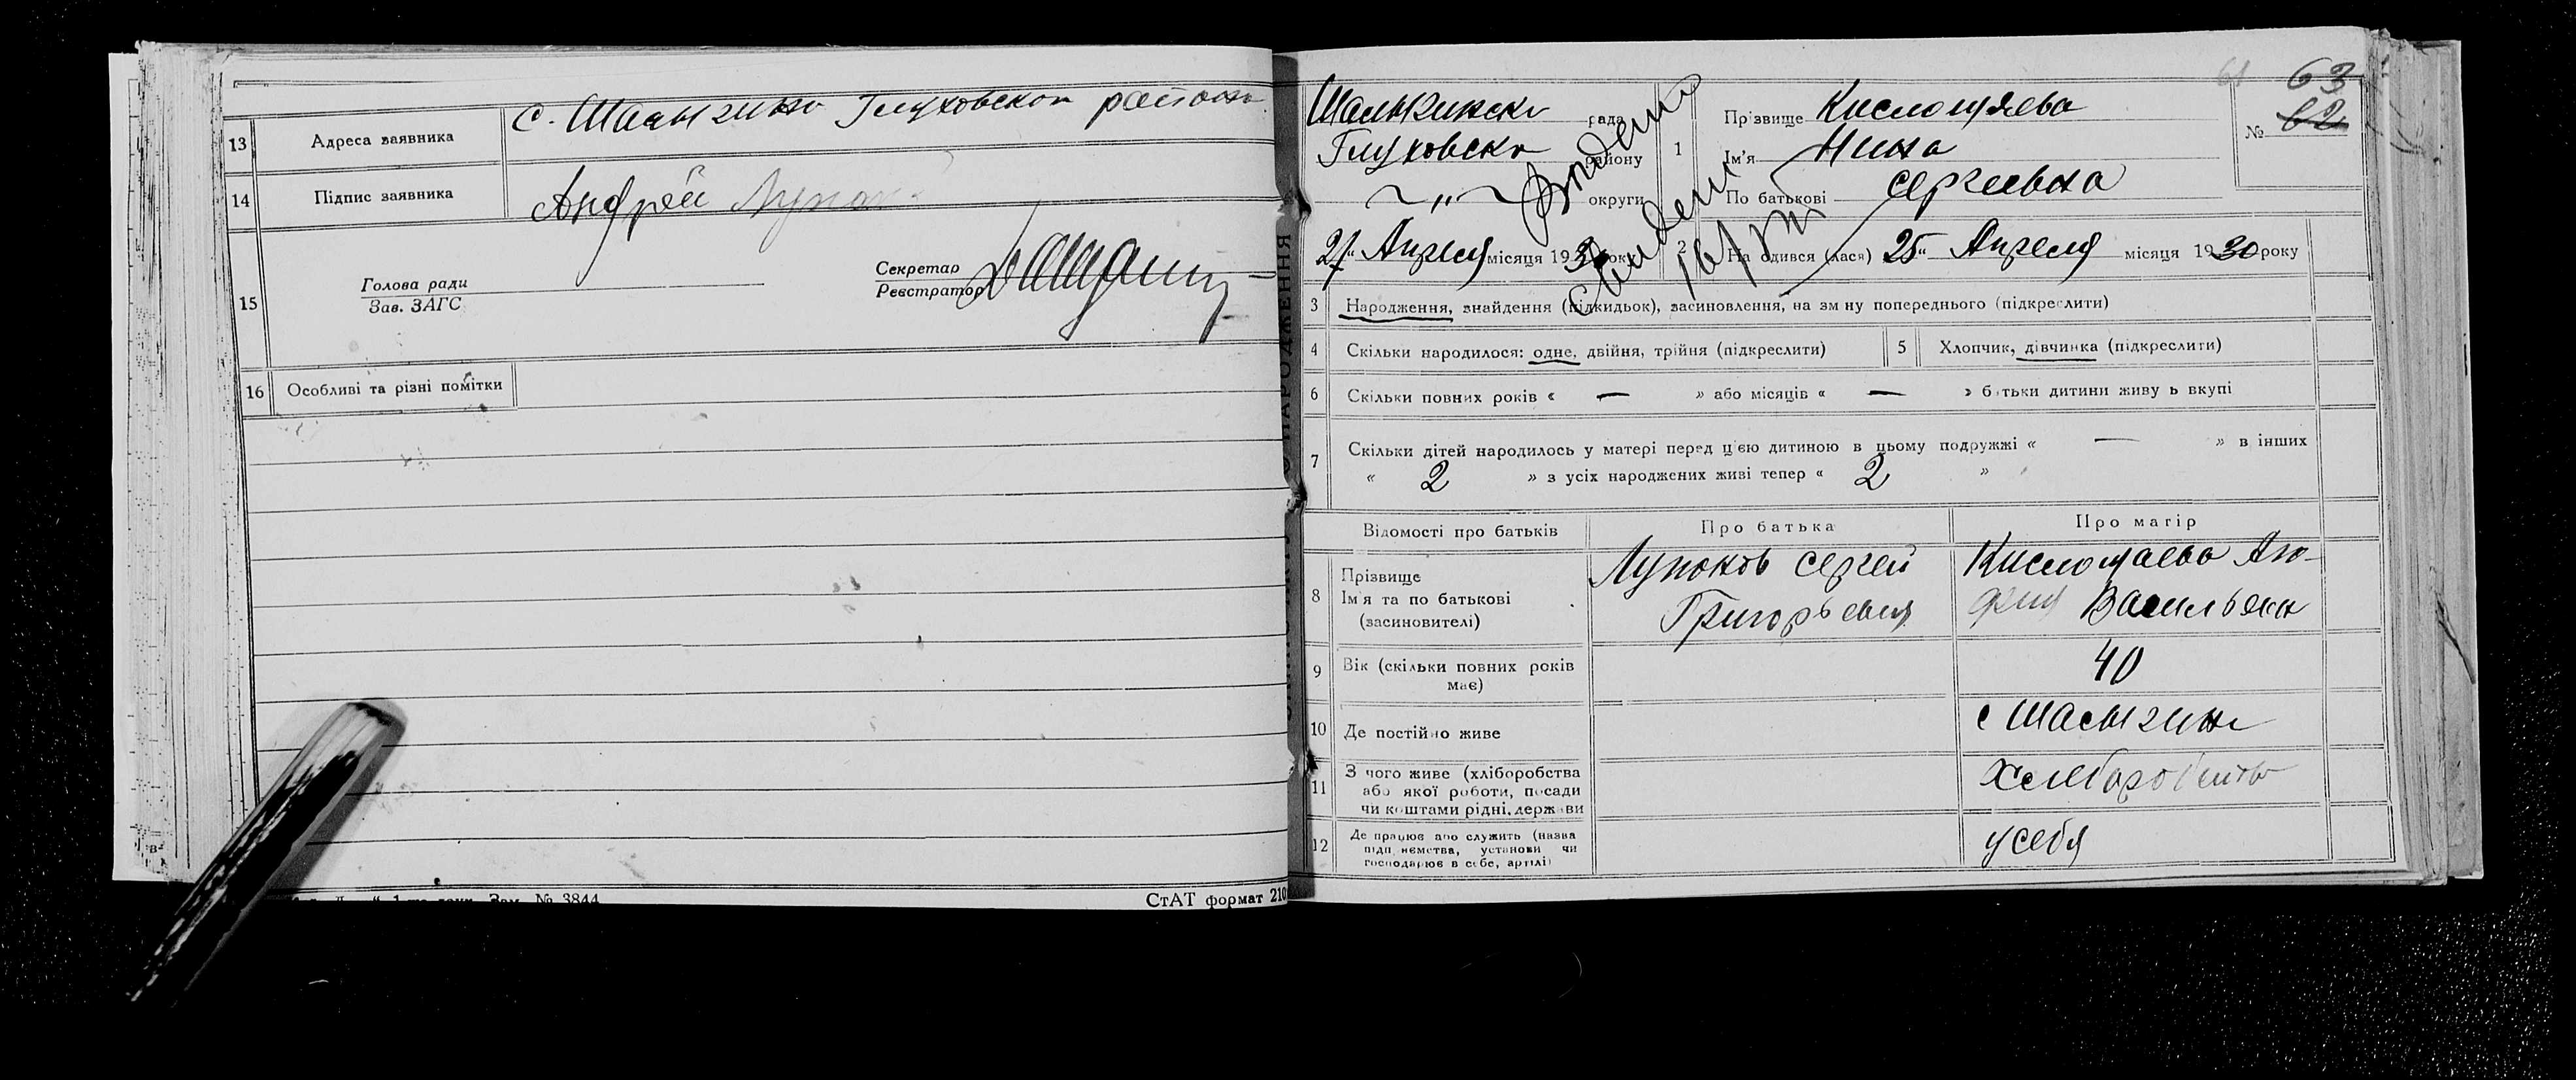 13 Адреса заявника с. Шалыгино Глуховского района
14 Підпис заявника Андрей
15 Голова ради
Зав. ЗАГС
Секретар
Реєстратор
16 Особливі та різні помітки
Зам. № 3844
СтАТ формат 210
61 63
№ 62
Шалыгинск рада
Глуховск району
~ " ~ округи
27 " Апреля місяця 1930 року
1 Прізвище Кислощяева
Ім'я Нина
По батькові Сергиевна
2 На одився (лася) 25 " Апреля місяця 1930 року
3 Народження, знайдення (підкидьок), засиновлення, на зм ну попереднього (підкреслити)
4 Скільки народилося: одне, двійня, трійня (підкреслити)
5 Хлопчик, дівчинка (підкреслити)
6 Скільки повних років « — » або місяців « — » батьки дитини живу ь вкупі
7 Скільки дітей народилось у матері перед цією дитиною в цьому подружжі « — » в інших
« 2 » з усіх народжених живі тепер « 2 »
Відомості про батьків
Про батька
Про матір
8 Прізвище
Ім'я та по батькові
(засиновителі)
Лупоков Сергей
Григорьевич
Кислощаева
Васильевн
9 Вік (скільки повних років
має)
40
10 Де постійно живе
с Шалыгино
11 З чого живе (хліборобства
або якої роботи, посади
чи коштами рідні, держави
12 Де працює або служить (назва
підп ємства, установи чи
господарює в себе, артілі)
у себя